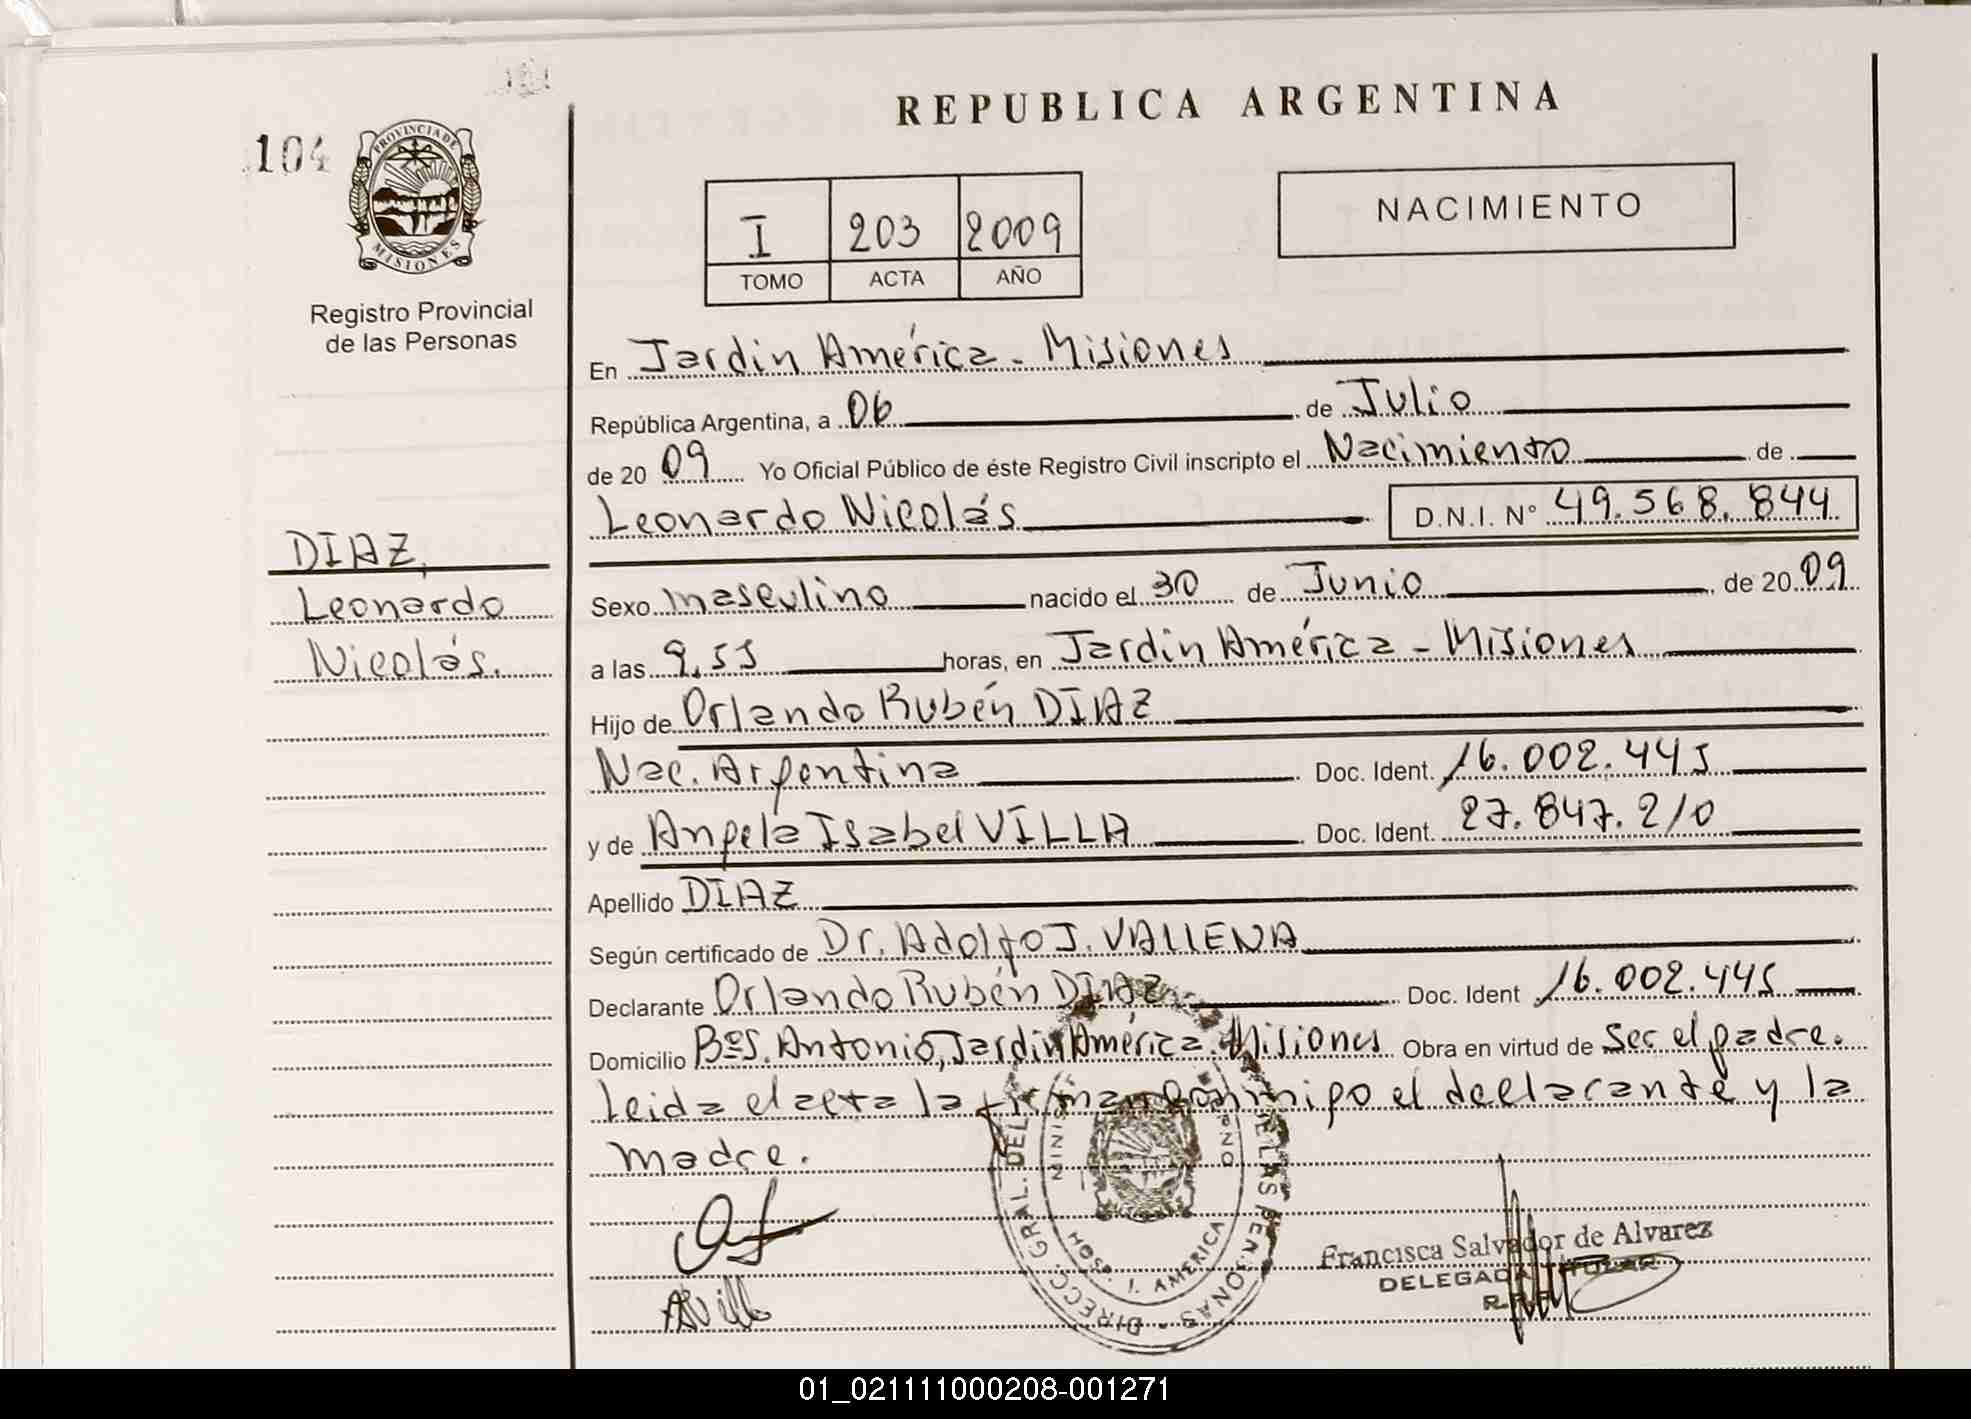 REPUBLICA ARGENTINA
104
PROVINCIA DE
MISIONES
Registro Provincial
de las Personas
I 203 2009
TOMO ACTA AÑO
NACIMIENTO
En Jardin América - Misiones
República Argentina, a 06 de Julio
de 20 09 Yo Oficial Público de éste Registro Civil inscripto el Nacimiento de
Leonardo Nicolás D.N.I. Nº 49.568.844
DIAZ,
Leonardo
Nicolás.
Sexo masculino nacido el 30 de Junio de 20 09
a las 9,55 horas, en Jardin América - Misiones
Hijo de Orlando Rubén DIAZ
Nac. Argentina Doc. Ident. 16.002.445
y de Angela Isabel VILLA Doc. Ident. 27.847.210
Apellido DIAZ
Según certificado de Dr. Adolfo J. VALLENA
Declarante Orlando Rubén DIAZ Doc. Ident 16.002.445
Domicilio Bº S. Antonio, Jardin América. Misiones Obra en virtud de Ser el padre.
Leida el acta la firman conmigo el declarante y la
madre.
DIRECC. GRAL. DEL PERSONAS
HOSP. J. AMERICA
AVilla
Francisca Salvador de Alvarez
DELEGADA TITULAR
01_021111000208-001271